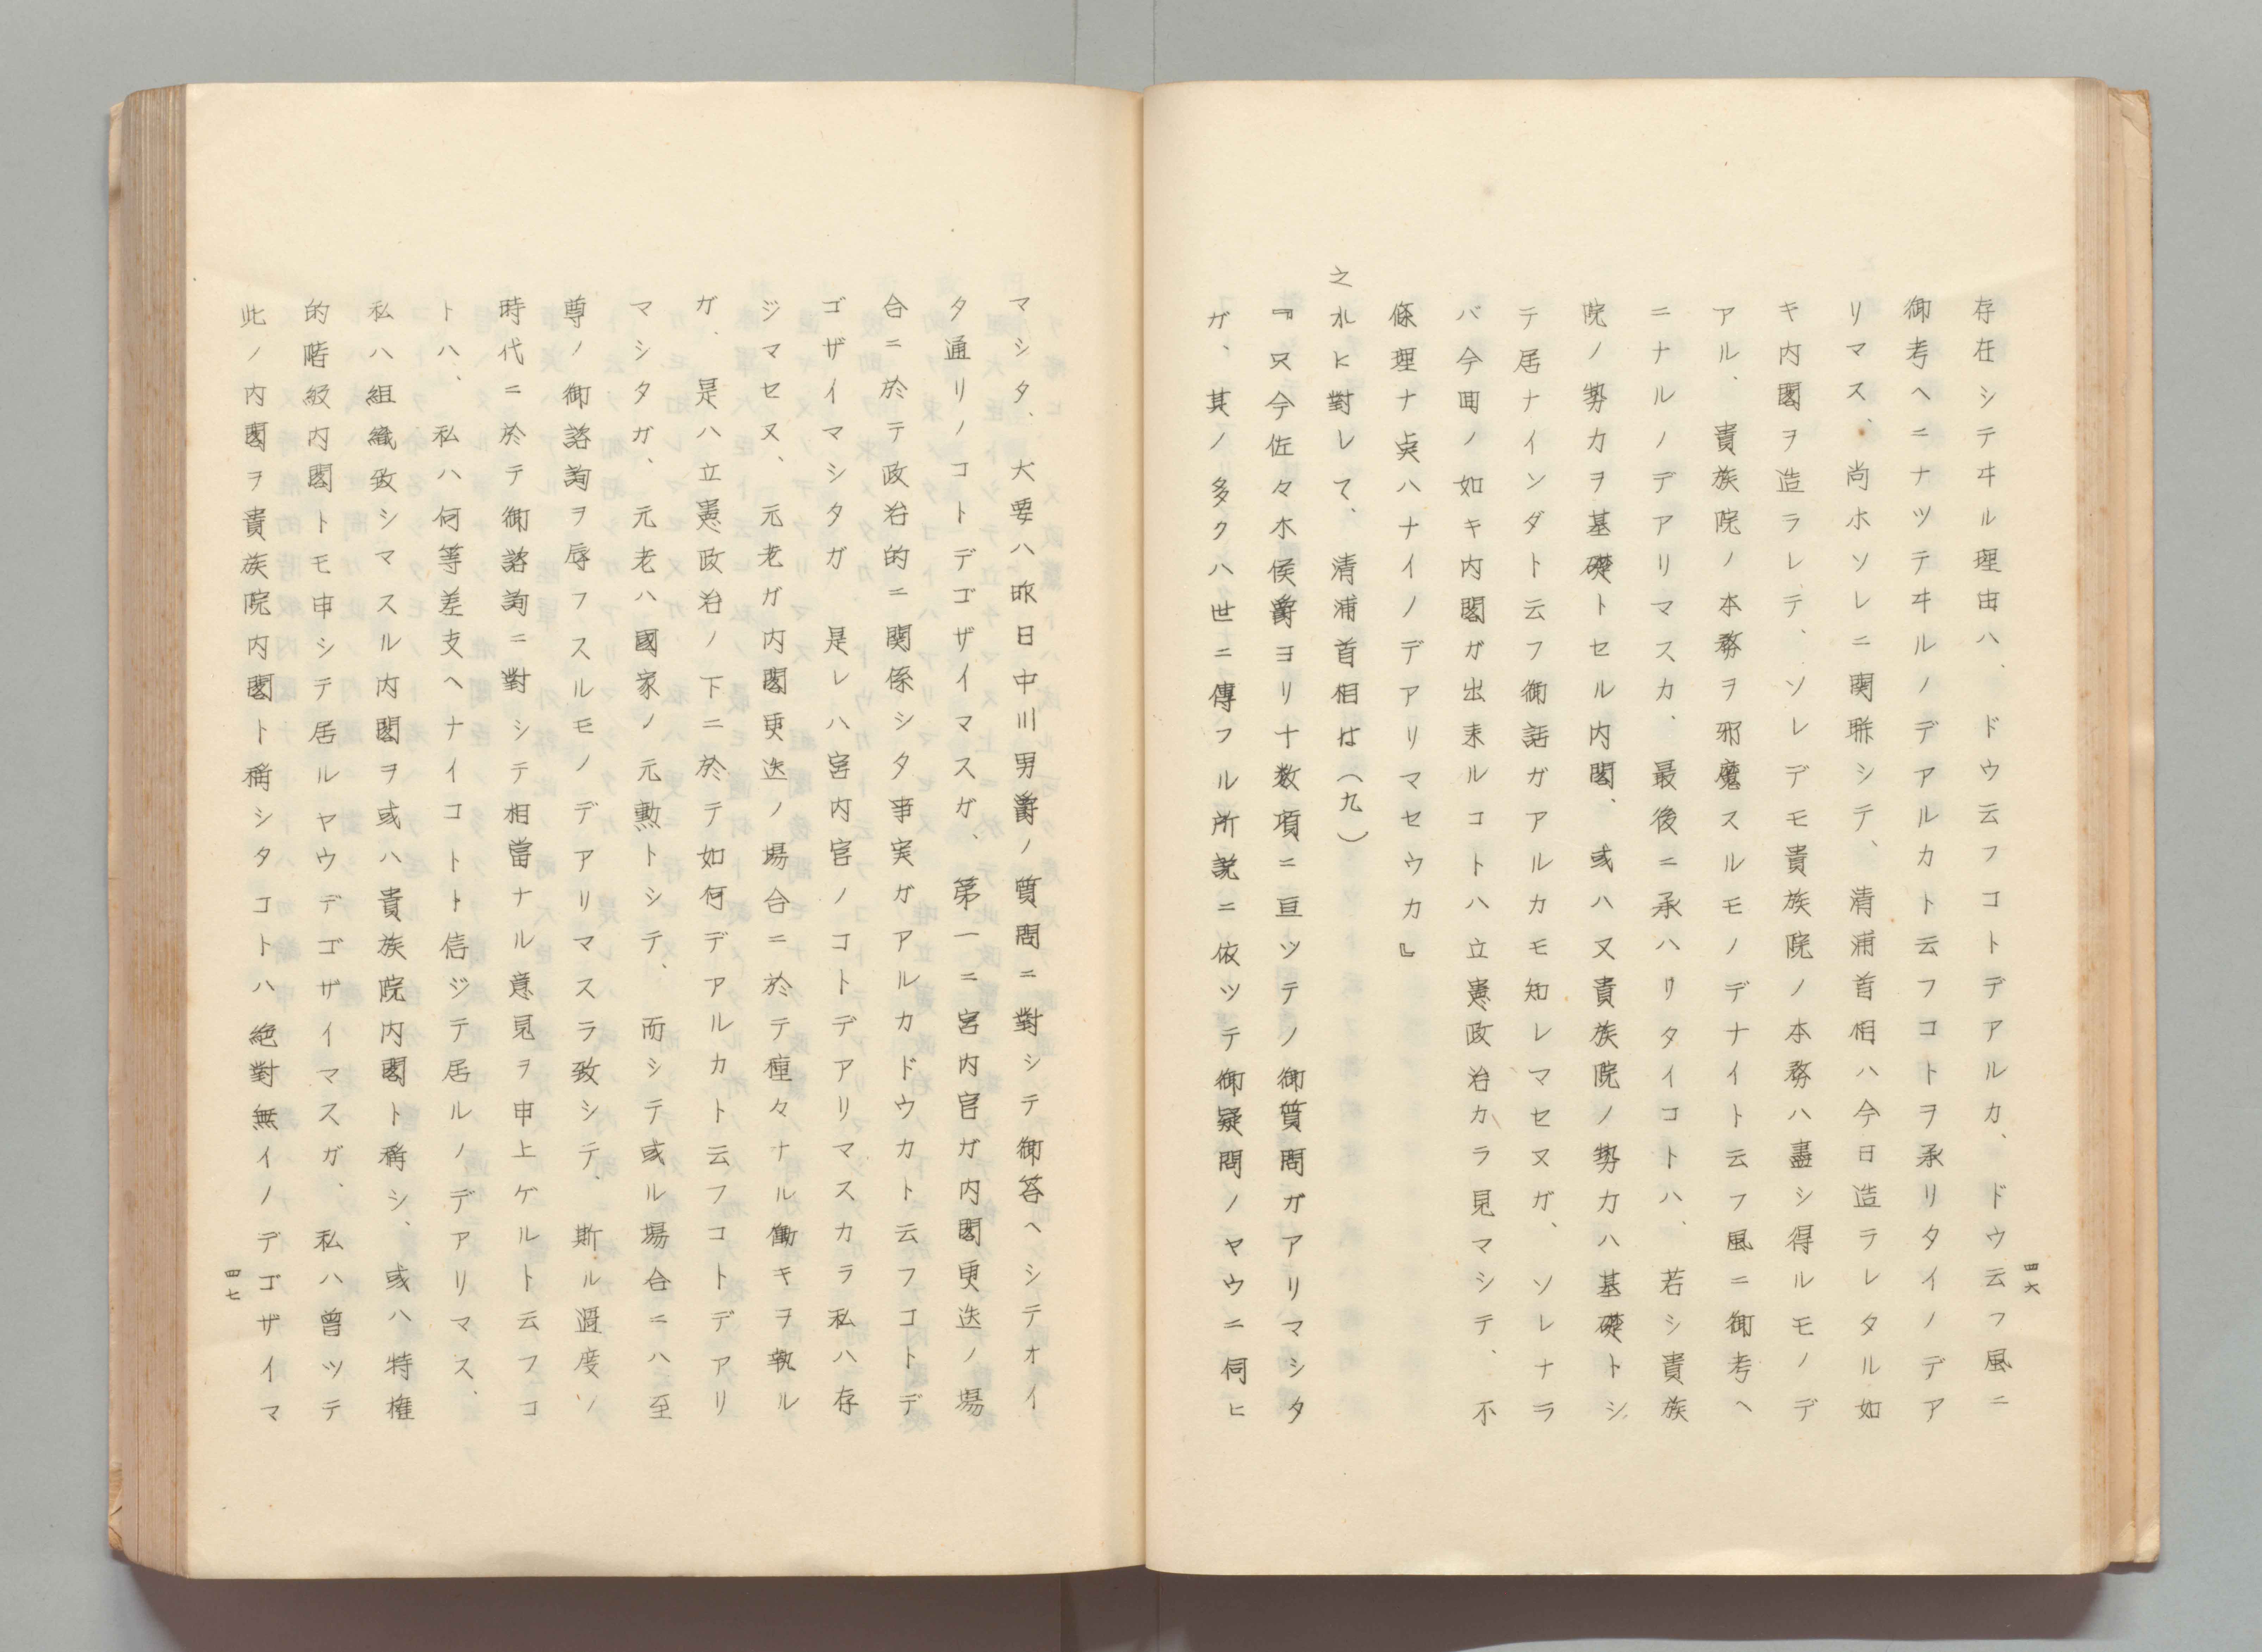 存在シテヰル理由ハ、ドウ云フコトデアルカ、ドウ云フ風ニ
御考ヘニナツテヰルノデアルカト云フコトヲ承リタイノデア
リマス、尚ホソレニ関聯シテ、清浦首相ハ今日造ラレタル如
キ内閣ヲ造ラレテ、ソレデモ貴族院ノ本務ハ盡シ得ルモノデ
アル、貴族院ノ本務ヲ邪魔スルモノデナイト云フ風ニ御考ヘ
ニナルノデアリマスカ、最後ニ承ハリタイコトハ、若シ貴族
院ノ勢力ヲ基礎トセル内閣、或ハ又貴族院ノ勢力ハ基礎トシ
テ居ナインダト云フ御話ガアルカモ知レマセヌガ、ソレナラ
バ今囬ノ如キ内閣ガ出来ルコトハ立憲政治カラ見マシテ、不
條理ナ点ハナイノデアリマセウカ』
之れに對して、清浦首相は（九）
『只今佐々木侯爵ヨリ十数項ニ亘ツテノ御質問ガアリマシタ
ガ、其ノ多クハ世ニ傳フル所説ニ依ツテ御疑問ノヤウニ伺ヒ
四六
マシタ、大要ハ昨日中川男爵ノ質問ニ對シテ御答ヘシテオイ
タ通リノコトデゴザイマスガ、第一ニ宮内官ガ内閣更迭ノ場
合ニ於テ政治的ニ関係シタ事実ガアルカドウカト云フコトデ
ゴザイマシタガ　是レハ宮内官ノコトデアリマスカラ私ハ存
ジマセヌ、元老ガ内閣更迭ノ場合ニ於テ種々ナル働キヲ執ル
ガ、是ハ立憲政治ノ下ニ於テ如何デアルカト云フコトデアリ
マシタガ、元老ハ國家ノ元勲トシテ、而シテ或ル場合ニハ至
尊ノ御諮詢ヲ辱フスルモノデアリマスラ致シテ、斯ル過度ノ
時代ニ於テ御諮詢ニ對シテ相當ナル意見ヲ申上ゲルト云フコ
トハ、私ハ何等差支ヘナイコトト信ジテ居ルノデアリマス、
私ハ組織致シマスル内閣ヲ或ハ貴族院内閣ト稱シ、或ハ特権
的階級内閣トモ申シテ居ルヤウデゴザイマスガ、私ハ曾ツテ
此ノ内閣ヲ貴族院内閣ト稱シタコトハ絶對無イノデゴザイマ
四七